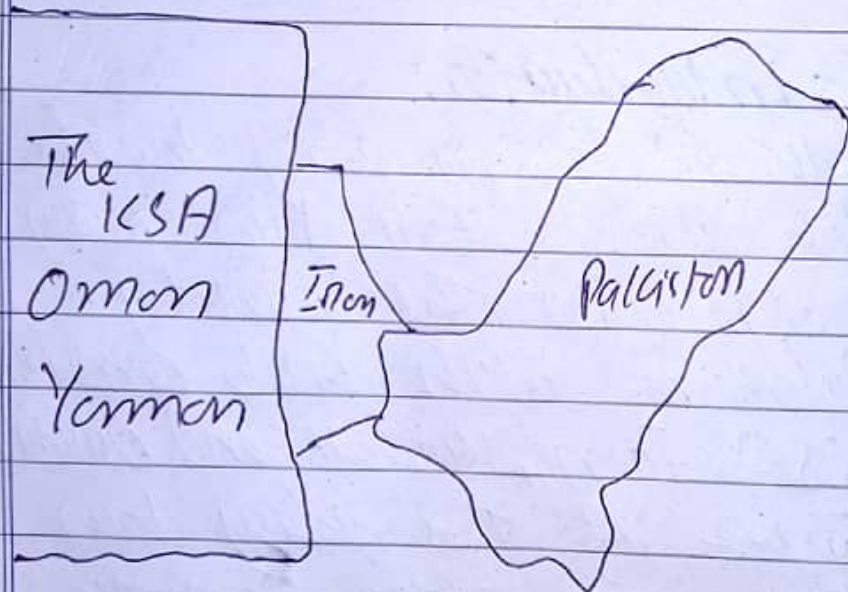 The
KSA
Oman
Yamman
Iran
Pakistan